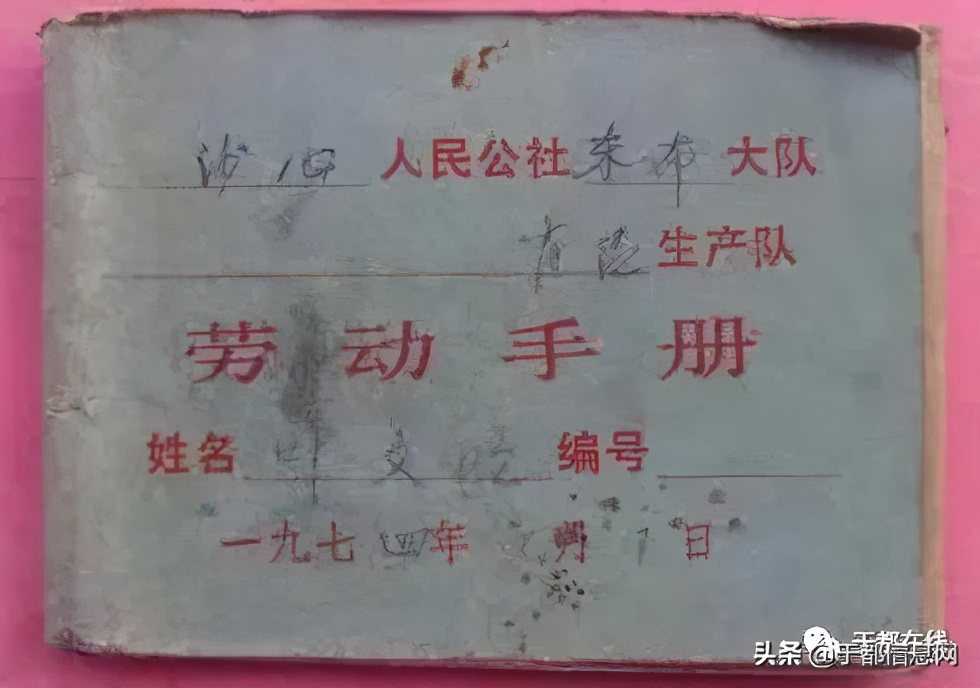 沙心人民公社朱布大队
生产队
劳动手册
姓名 文 编号
一九七四年 月 日
于都在线
头条 @于都信息网